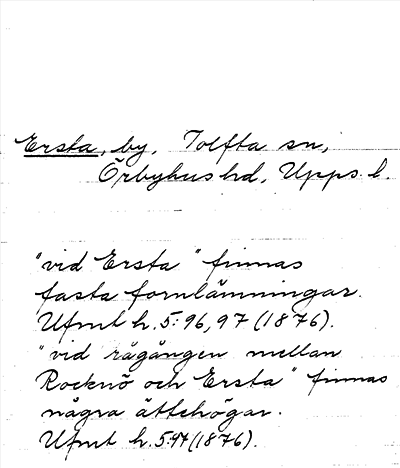 Ersta, by, Tolfta sn,
Örbyhus hd, Upps. l.
"vid Ersta" finnas
fasta fornlämningar.
Ufmt h. 5: 96, 97 (1876).
"vid rågången mellan
Rocknö och Ersta" finnas
några ättehögar.
Ufmt h. 5: 97 (1876).